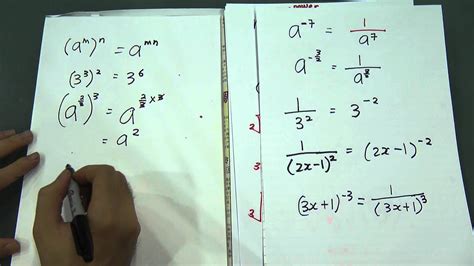 (aᵐ)ⁿ = aᵐⁿ
(3³)² = 3⁶
(a^(2/3))³ = a^(2/3 × 3)
= a²
a⁻⁷ = 1/a⁷
1/3² = 3⁻²
1/(2x-1)² = (2x-1)⁻²
(3x+1)⁻³ = 1/(3x+1)³